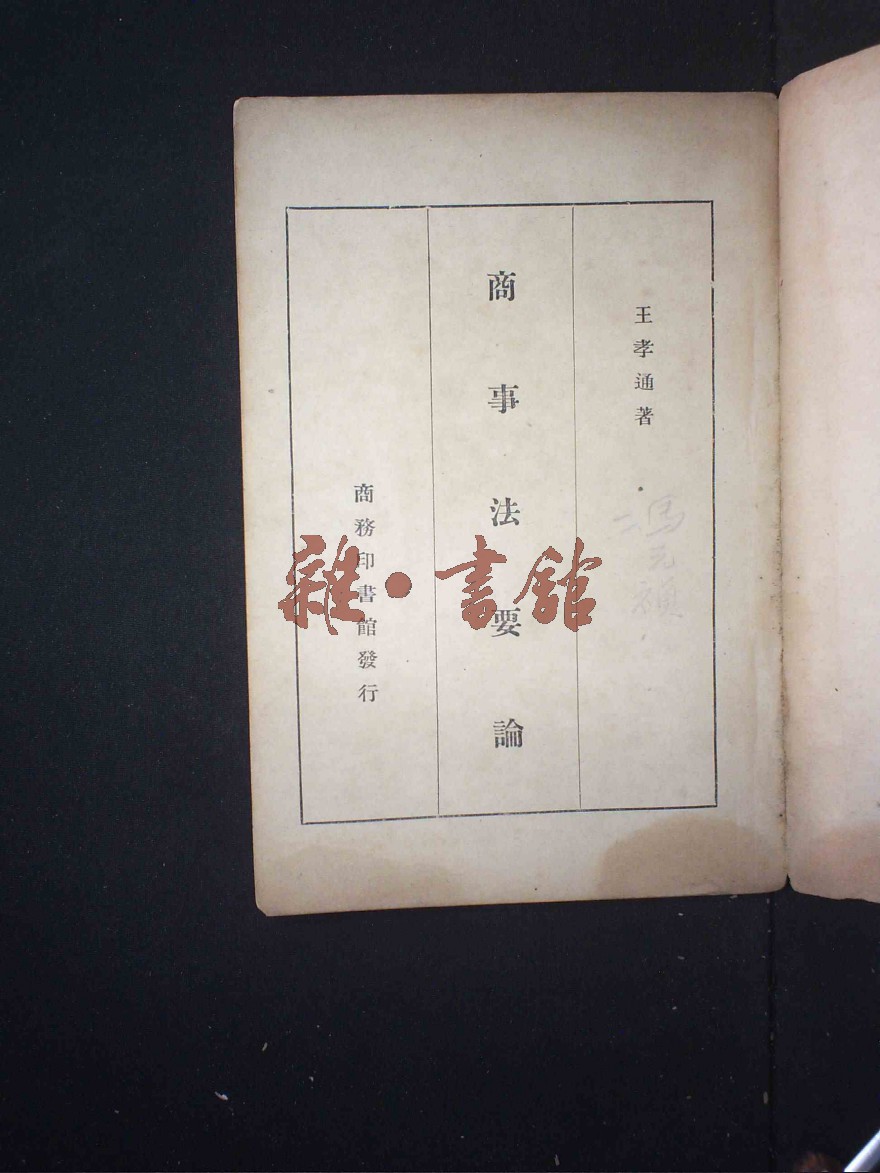 王孝通著
商事法要論
商務印書館發行
雜·書館